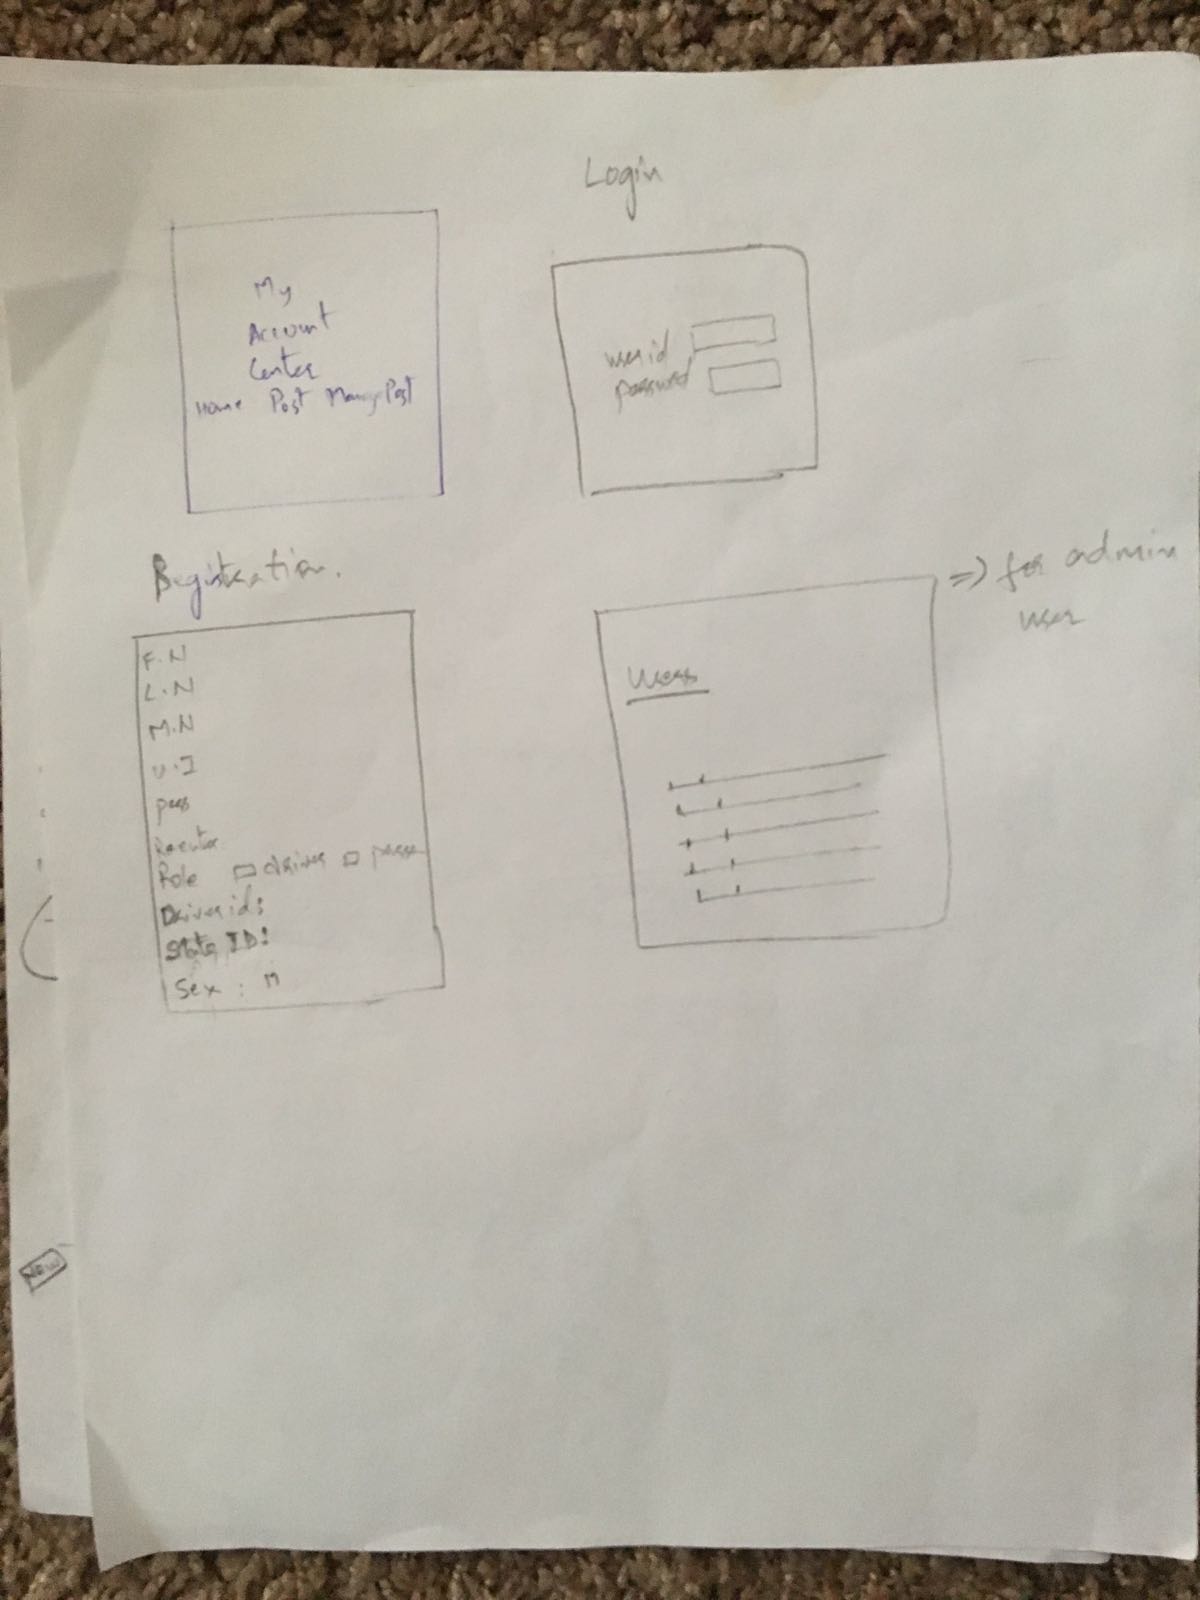 Login
My
Account
Center
Home Post Manage Post
user id
password
Registration.
F.N
L.N
M.N
U.I
pass
Re enter
Role driver passe
Driver id:
State ID:
Sex : M
=> for admin
user
Users
New